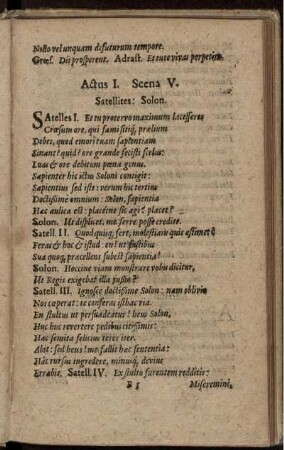 Nullo vel unquam defuturum tempore.
Crœs. Dii prosperent. Adrast. Et tu te vivas perpetim.
Actus I. Scena V.
Satellites: Solon.
SAtelles I. Et tu protervo maximum lacessere
Crœsum ore, qui fami sitiq, prælium
Debes, quod emori tuam sapientiam
Sinant? quid? ore grande fecisti scelus:
Luas & ore debitum pœnæ genus.
Sapienter hic ictus Soloni contigit:
Sapientius sed iste: verum hic tertius
Doctissime omnium: Solon, sapientia
Hæc aulica est: placetne sic agi? placet?
Solon. Id displicet, me ferre posse credite.
Satell. II. Quod quisq, fert, molestiam quis æstimet?
Feras & hoc & istud: en! ut fustibus
Sua quoq, præcellens subest sapientia!
Solon. Hoccine viam monstrare vobis dicitur,
Ut Regis exigebat illa jussio?
Satell. III. Ignosce doctissime Solon: nam oblivio
Nos ceperat: te conferas isthac via.
En stultus ut persuadeatur! heus Solon,
Huc huc revertere pedibus citissimis:
Hac semita felicius teres iter.
Abit: sed heus! me fallit hæc sententia:
Hac rursus ingredere, minusq, devius
Errabis. Satell. IV. Ex stulto furentem redditis:
B 5 Miseremini,